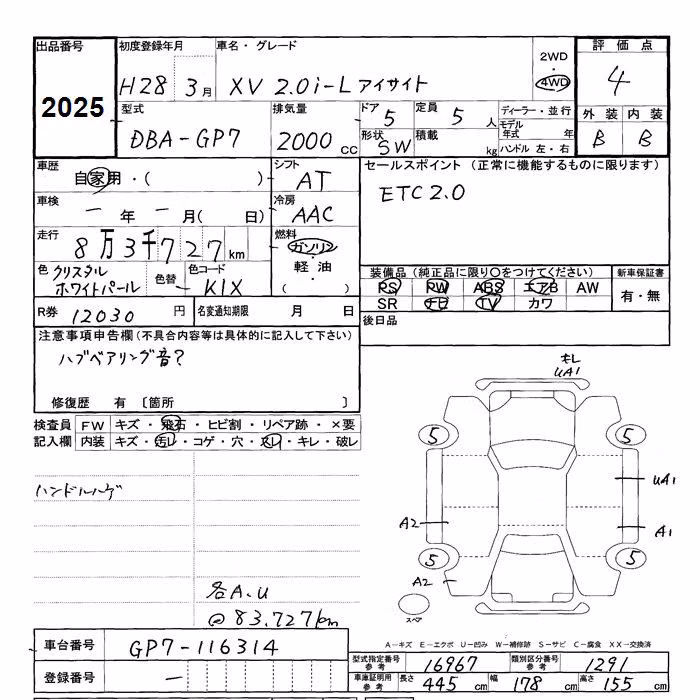 出品番号 2025
初度登録年月 H28 3月
車名・グレード XV 2.0i-L アイサイト
2WD・4WD
評価点 4
型式 DBA-GP7
排気量 2000 CC
ドア 5
定員 5 人
形状 SW
積載 kg
ディーラー・並行
モデル年式 年
ハンドル 左・右
外装 内装
B B
車歴 自家用・( )
シフト AT
セールスポイント (正常に機能するものに限ります)
ETC2.0
車検 ー年 ー月( 日)
冷房 AAC
走行 8万3千727km
燃料 ガソリン・軽油・( )
色 クリスタルホワイトパール
色替
色コード K1X
装備品 (純正品に限り○をつけてください)
PS PW ABS エアB AW
SR ナビ TV カワ
新車保証書 有・無
R券 12030 円
名変通知期限 月 日
後日品
注意事項申告欄(不具合内容等は具体的に記入して下さい)
ハブベアリング音?
修復歴 有 〔箇所 〕
検査員記入欄
FW キズ・飛石・ヒビ割・リペア跡・×要
内装 キズ・汚レ・コゲ・穴・スレ・キレ・破レ
ハンドルハゲ
各A.U
@83.727km
キレ
UA1
5 5
UA1
A2 A1
5 5
A2
スペア
A-キズ E-エクボ U-凹み W-補修跡 S-サビ C-腐食 XX-交換済
車台番号 GP7-116314
登録番号 ー
型式指定番号 参考 16967
類別区分番号 参考 1291
車庫証明用 参考 長さ 445 cm 幅 178 cm 高さ 155 cm